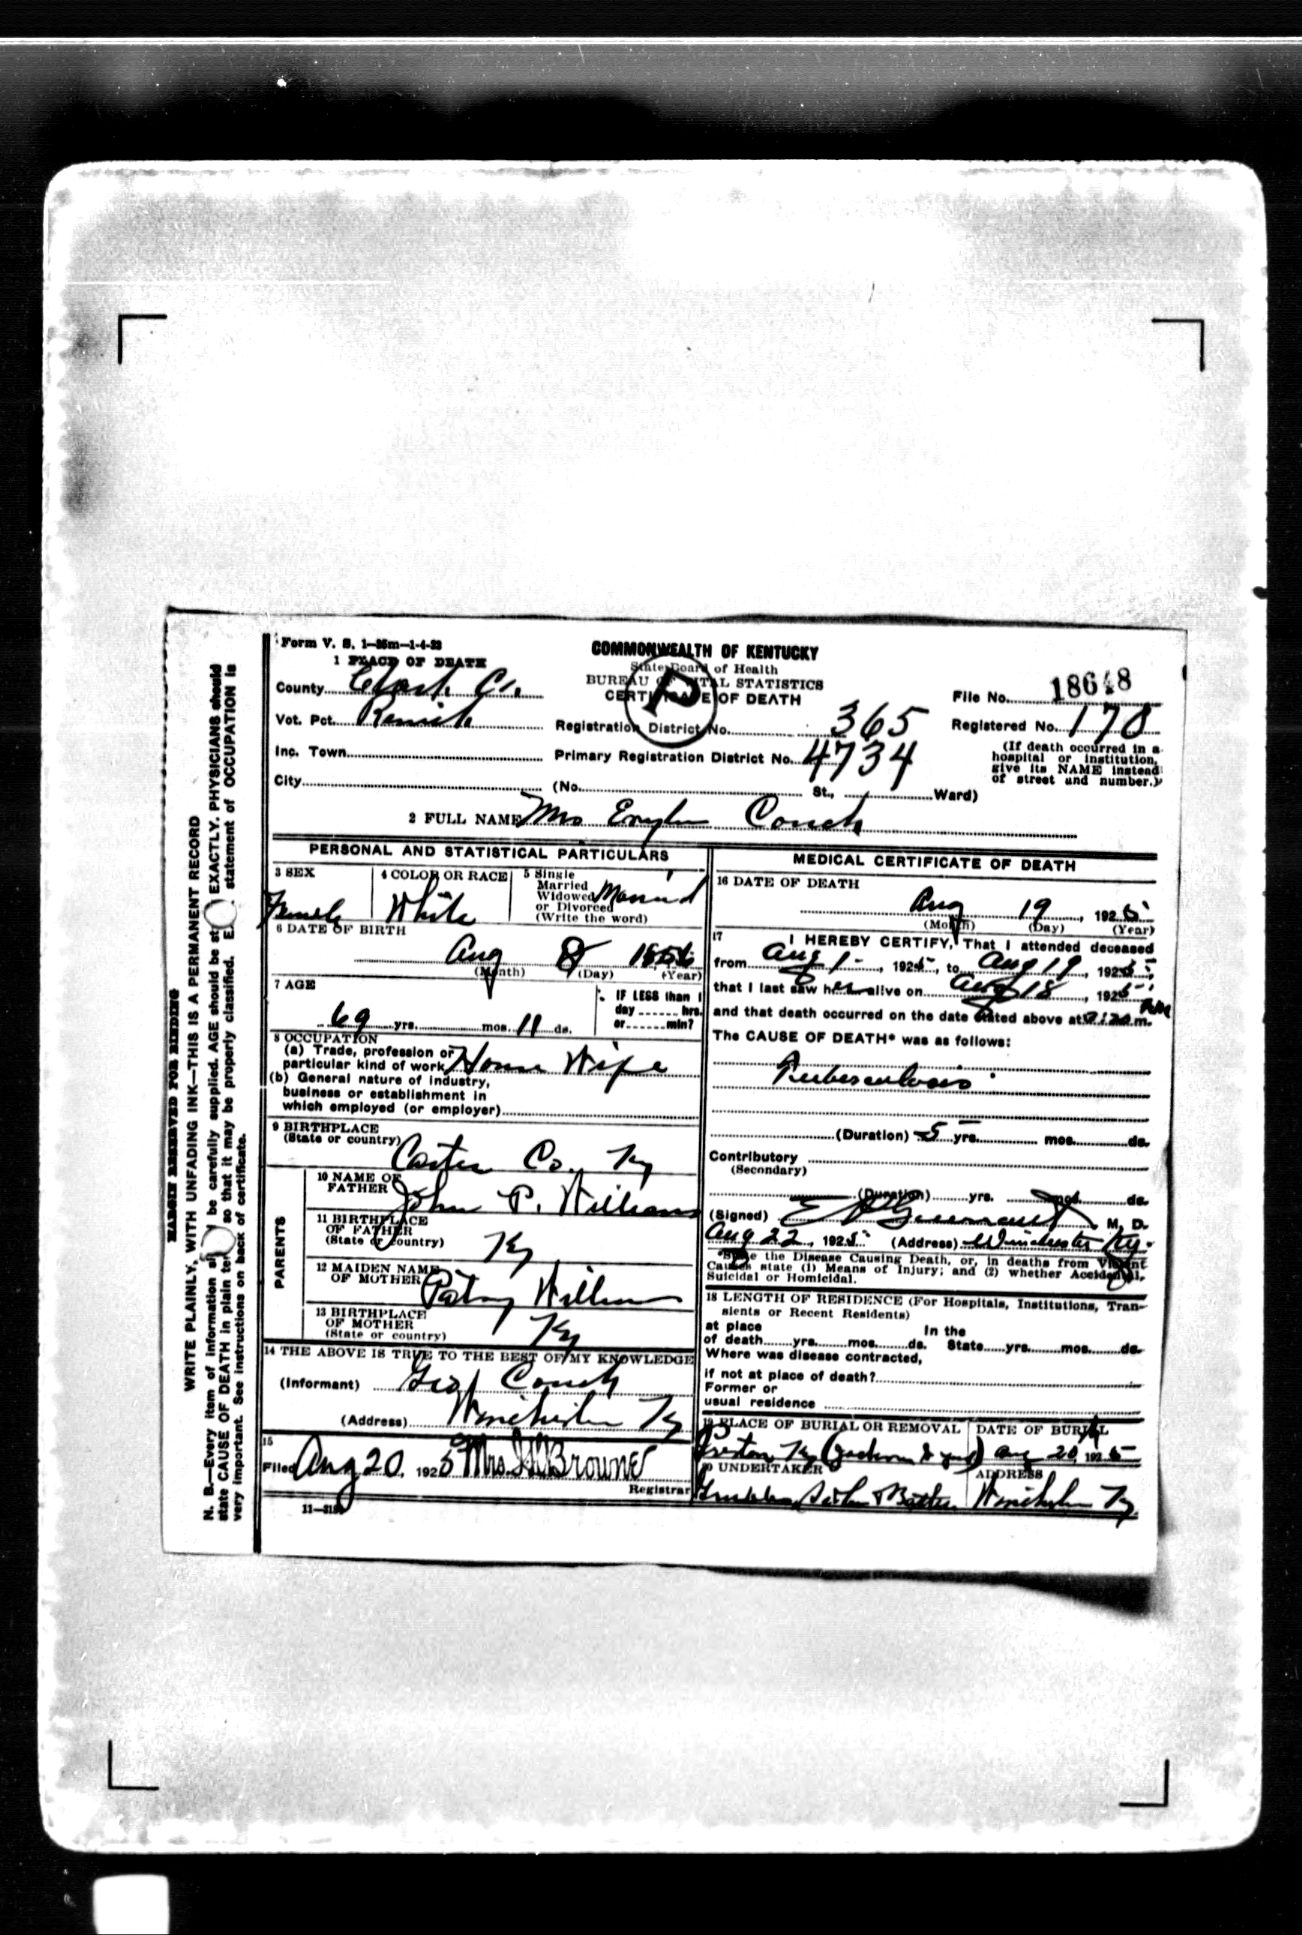 Form V. S. 1—25m—1-4-23
COMMONWEALTH OF KENTUCKY
State Board of Health
BUREAU OF VITAL STATISTICS
CERTIFICATE OF DEATH
1 PLACE OF DEATH
County Clark Co.
Vot. Pct.
Inc. Town
City
Registration District No. 365
Primary Registration District No. 4734
(No. St., Ward)
File No. 18648
Registered No. 178
(If death occurred in a
hospital or institution,
give its NAME instead
of street and number.)
2 FULL NAME Mrs Couch
PERSONAL AND STATISTICAL PARTICULARS
3 SEX
Female
4 COLOR OR RACE
White
5 Single
Married
Widowed
or Divorced
(Write the word)
Married
6 DATE OF BIRTH
Aug 8 1856
(Month) (Day) (Year)
7 AGE
69 yrs. mos. 11 ds.
IF LESS than 1
day hrs.
or min?
8 OCCUPATION
(a) Trade, profession or
particular kind of work House Wife
(b) General nature of industry,
business or establishment in
which employed (or employer)
9 BIRTHPLACE
(State or country)
Carter Co. Ky
PARENTS
10 NAME OF
FATHER John P. Williams
11 BIRTHPLACE
OF FATHER
(State or country) Ky
12 MAIDEN NAME
OF MOTHER Patsy Williams
13 BIRTHPLACE
OF MOTHER
(State or country) Ky
14 THE ABOVE IS TRUE TO THE BEST OF MY KNOWLEDGE
(Informant) Geo Couch
(Address) Winchester Ky
15
Filed Aug 20, 1925 Mrs. Browne
Registrar
MEDICAL CERTIFICATE OF DEATH
16 DATE OF DEATH
Aug 19, 1925
(Month) (Day) (Year)
17 I HEREBY CERTIFY, That I attended deceased
from Aug 1-, 1925, to Aug 19, 1925,
that I last saw her alive on Aug 18, 1925
and that death occurred on the date stated above at m.
The CAUSE OF DEATH* was as follows:
Tuberculosis
(Duration) 5 yrs. mos. ds.
Contributory
(Secondary)
(Duration) yrs. mos. ds.
(Signed) M. D.
Aug 22, 1925 (Address) Winchester Ky.
*State the Disease Causing Death, or, in deaths from Violent
Causes state (1) Means of Injury; and (2) whether Accidental,
Suicidal or Homicidal.
18 LENGTH OF RESIDENCE (For Hospitals, Institutions, Tran-
sients or Recent Residents)
at place In the
of death yrs. mos. ds. State yrs. mos. ds.
Where was disease contracted,
if not at place of death?
Former or
usual residence
19 PLACE OF BURIAL OR REMOVAL
DATE OF BURIAL
Preston Ky Aug 20, 1925
20 UNDERTAKER
ADDRESS
Winchester Ky
MARGIN RESERVED FOR BINDING
WRITE PLAINLY, WITH UNFADING INK—THIS IS A PERMANENT RECORD
N. B.—Every item of information should be carefully supplied. AGE should be stated EXACTLY. PHYSICIANS should
state CAUSE OF DEATH in plain terms so that it may be properly classified. Exact statement of OCCUPATION is
very important. See instructions on back of certificate.